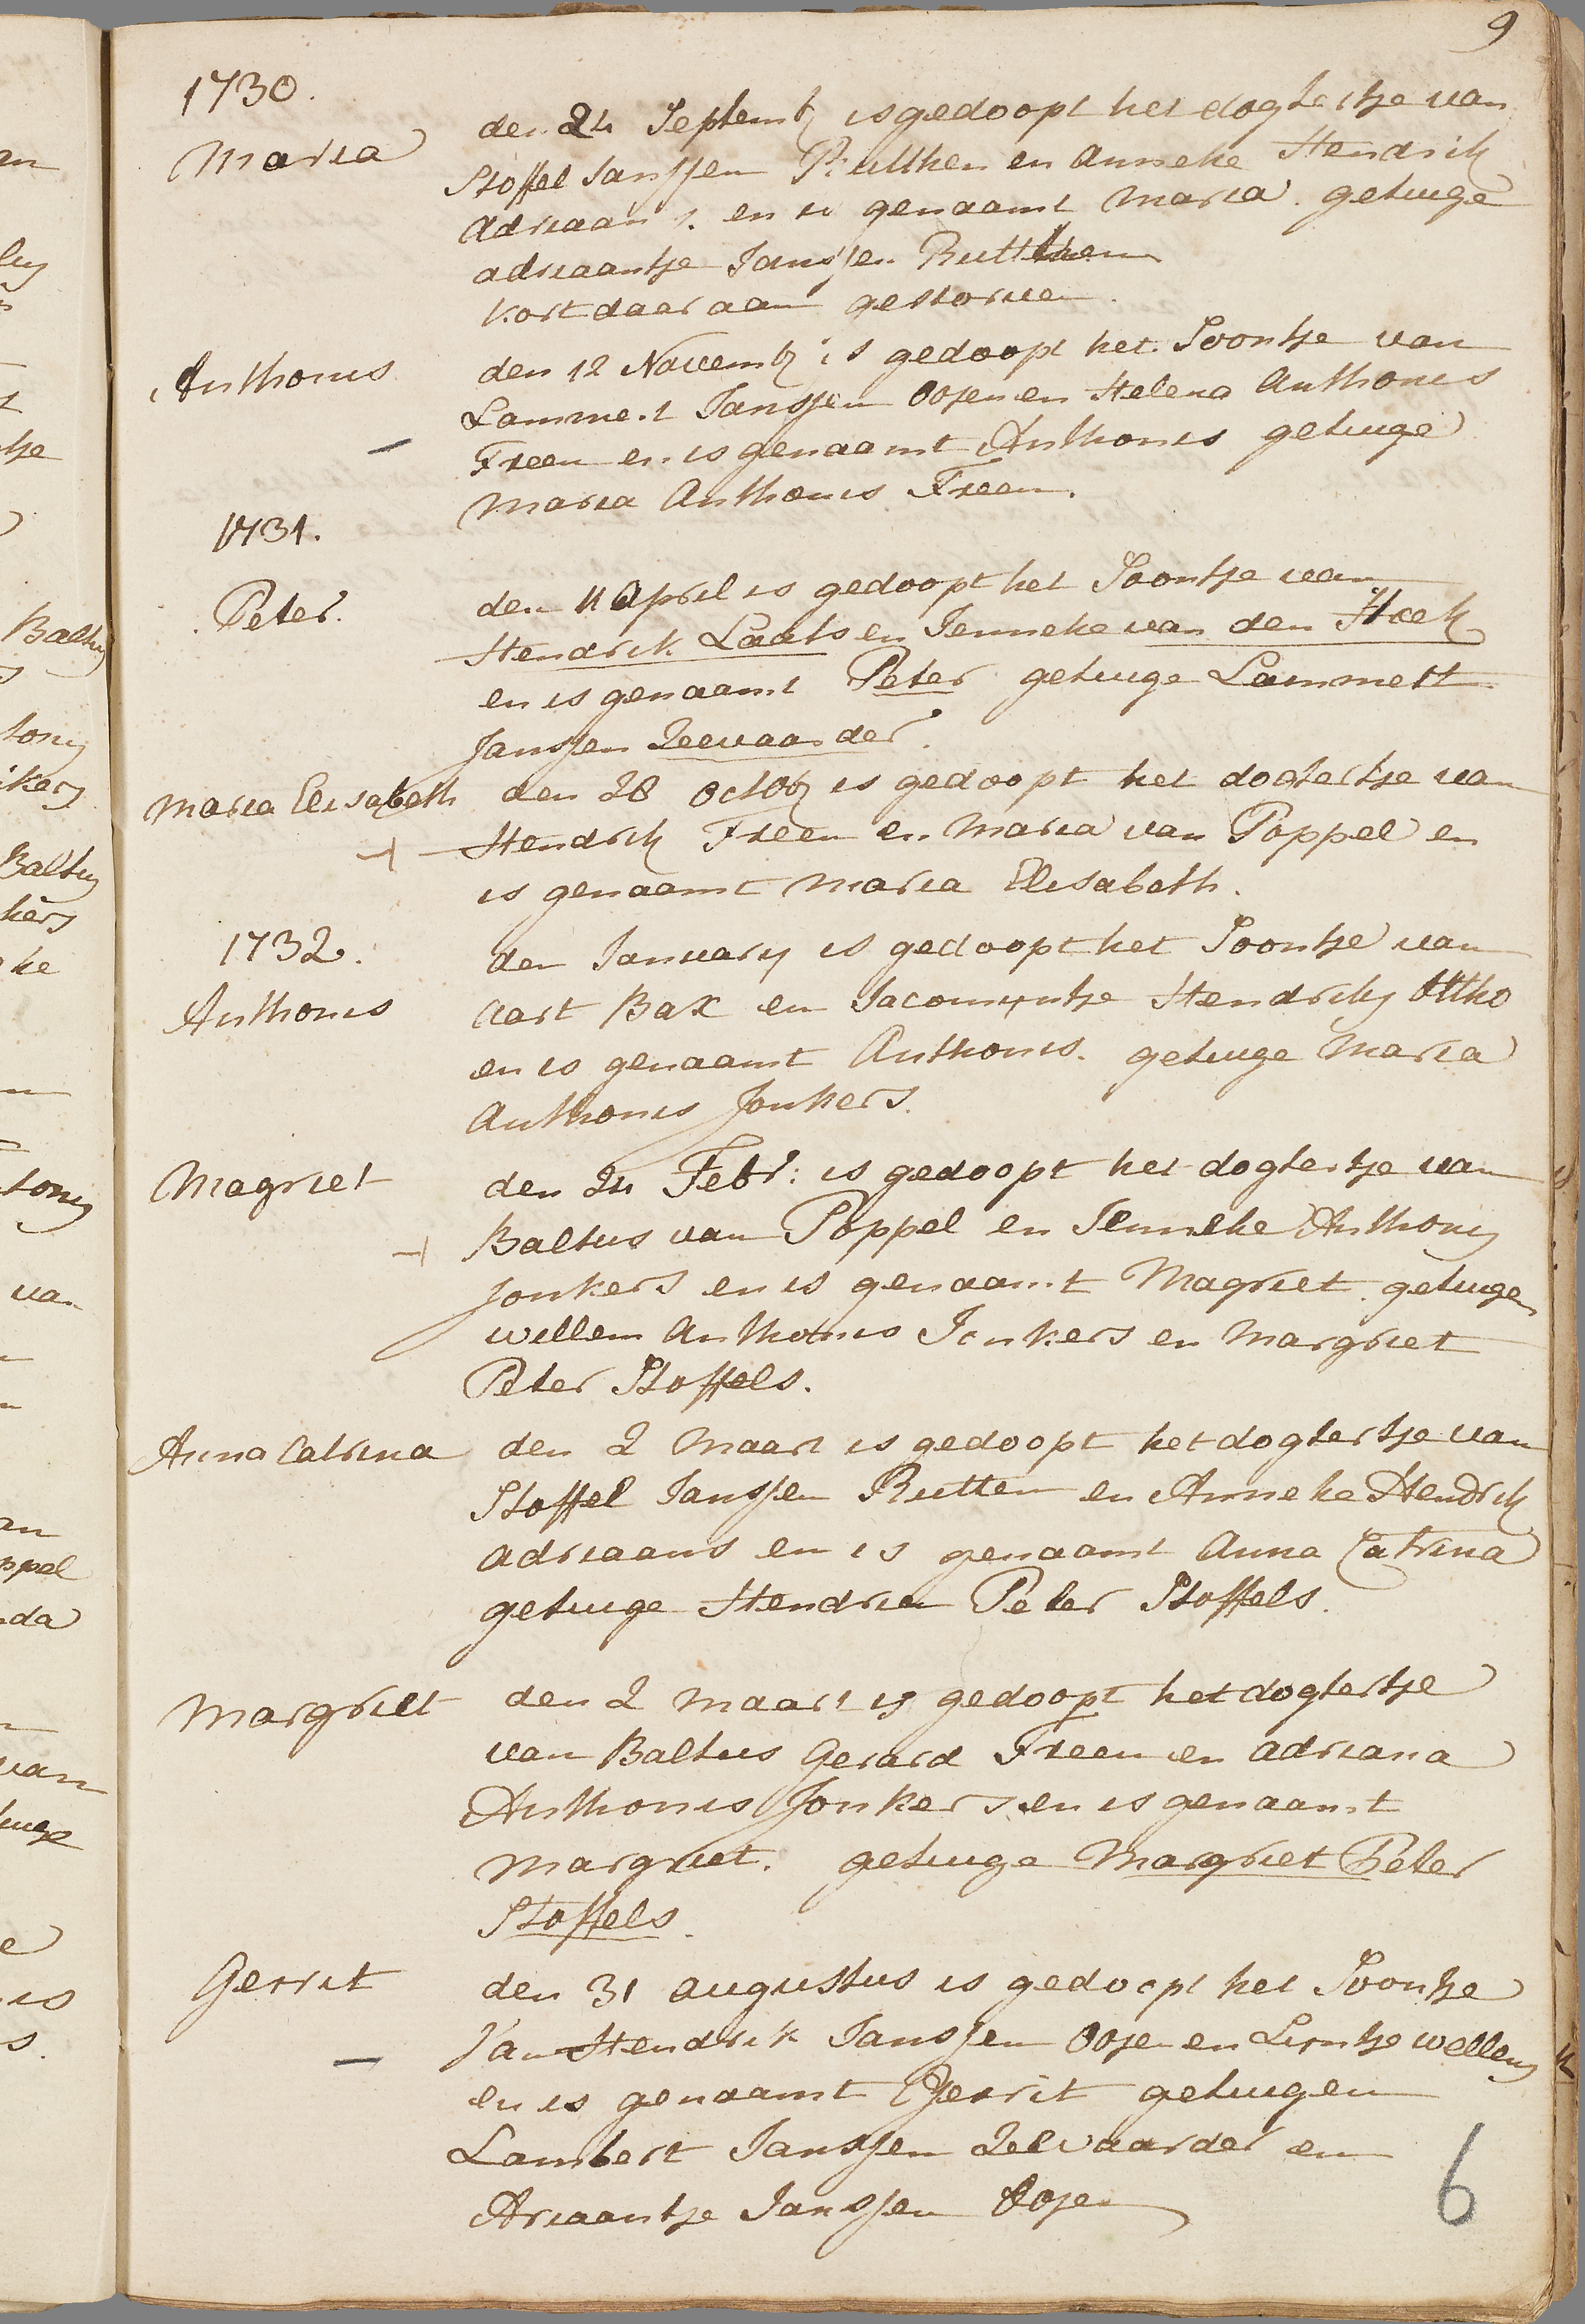 9
1730.
Maria
den 24 Septemb is gedoopt het dogtertje van
Stoffel Janssen Rutthen en Anneke Hendrik
Adriaans. en is genaamt Maria. getuige
adriaantje Janssen Rutthen
kort daar aan gestorven.
Anthonis
den 12 Novemb is gedoopt het Soontje van
Lammert Janssen Oojen en Helena Anthonis
Freen en is genaamt Anthonis getuige
Maria Anthonis Freen.
1731.
Peter.
den 11 April is gedoopt het Soontje van
Hendrik Laats en Jenneke van den Hoek
en is genaamt Peter getuige Lammert
Janssen Zeevaarder.
Maria Elisabeth
den 28 Octob is gedoopt het dogtertje van
Hendrik Freen en Maria van Poppel en
is genaamt Maria Elisabeth.
1732.
den January is gedoopt het Soontje van
Anthonis
Aart Bax en Jacomyntje Hendriks Ottho
en is genaamt Anthonis. getuige Maria
Anthonis Jonkers.
Magriet
den 24 Febr: is gedoopt het dogtertje van
Baltus van Poppel en Jenneke Anthonis
Jonkers en is genaamt Magriet. getuigen
willem Anthonis Jonkers en Margriet
Peter Stoffels.
Anna Catrina
den 2 Maart is gedoopt het dogtertje van
Stoffel Janssen Rutten en Anneke Hendrik
Adriaans en is genaamt Anna Catrina
getuige Hendrien Peter Stoffels.
Margriet
den 2 Maart is gedoopt het dogtertje
van Baltus Gerard Freen en Adriana
Anthonis Jonkers en is genaamt
Margriet. getuige Margriet Peter
Stoffels.
Gerrit
den 31 augustus is gedoopt het Soontje
Van Hendrik Janssen Oojen en Lyntje Willems
en is genaamt Gerrit getuigen
Lambert Janssen Zeevaarder en
Ariaantje Janssen Oojen
6